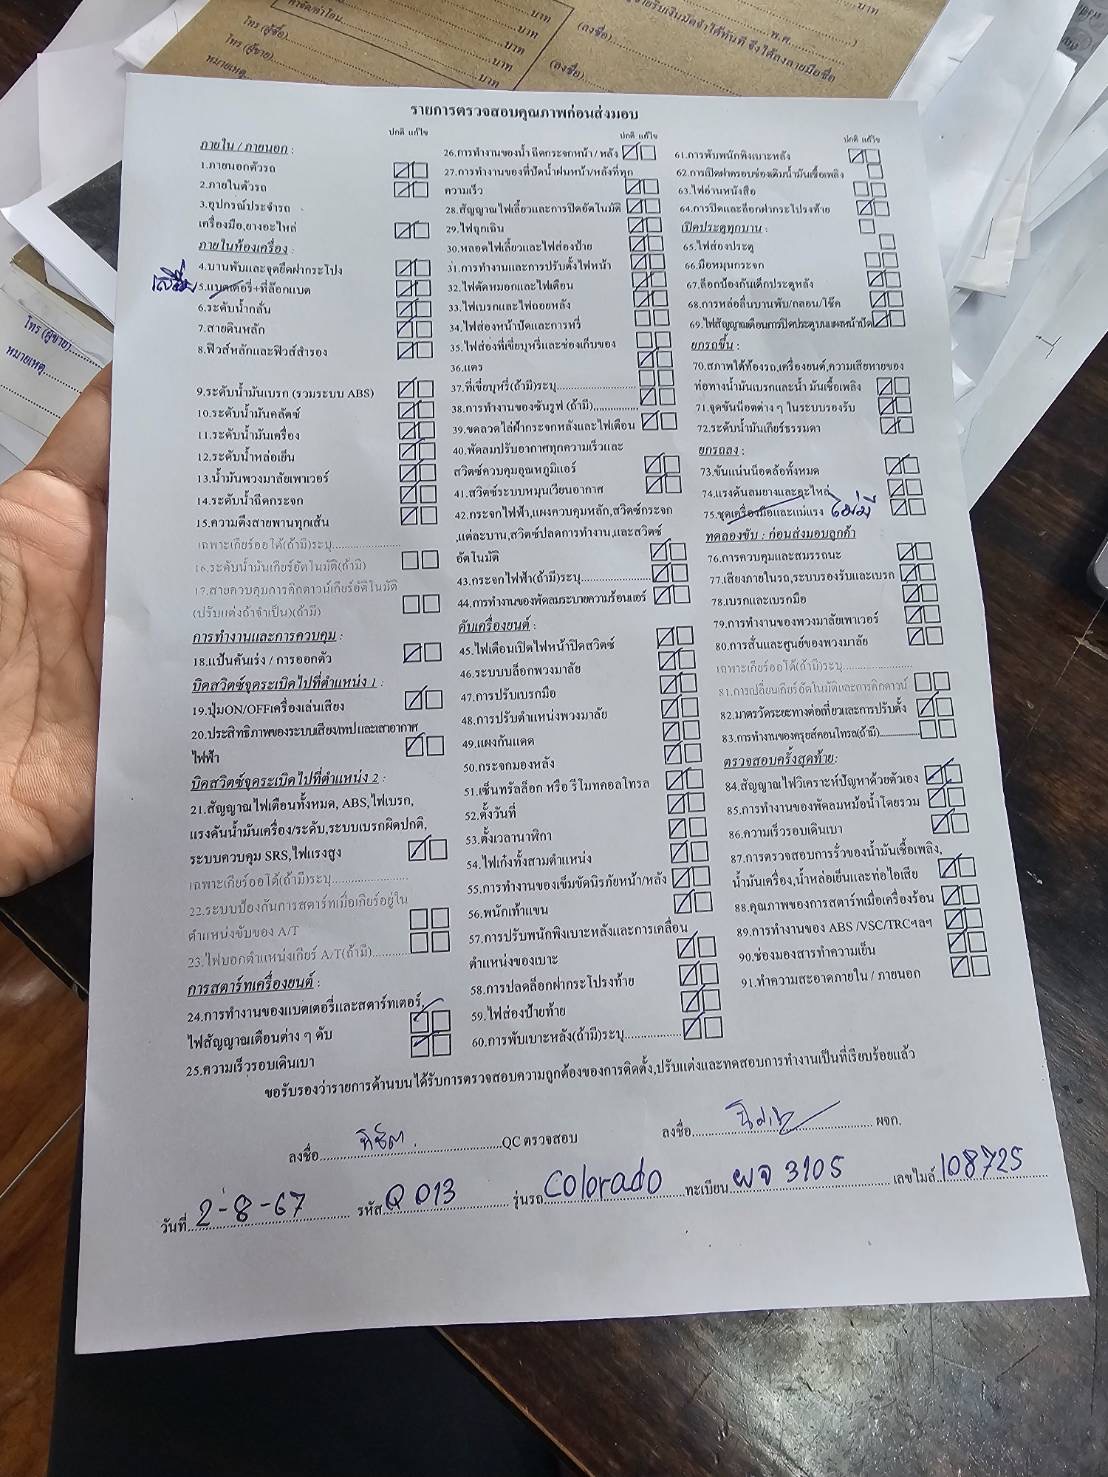 บาท
บาท
บาท
พ.ศ.
โทร (ผู้ซื้อ)
โทร (ผู้ขาย)
หมายเหตุ
บาท
(ลงชื่อ)
(ลงชื่อ)
โทร (ผู้ซื้อ)
หมายเหตุ
รายการตรวจสอบคุณภาพก่อนส่งมอบ
ปกติ แก้ไข
ภายใน / ภายนอก :
1.ภายนอกตัวรถ
2.ภายในตัวรถ
3.อุปกรณ์ประจำรถ
เครื่องมือ,ยางอะไหล่
ภายในห้องเครื่อง :
4.บานพับและจุดยึดฝากระโปง
เสื่อม 5.แบตเตอรี่+ที่ล๊อกแบต
6.ระดับน้ำกลั่น
7.สายดินหลัก
8.ฟิวส์หลักและฟิวส์สำรอง
9.ระดับน้ำมันเบรก (รวมระบบ ABS)
10.ระดับน้ำมันคลัตช์
11.ระดับน้ำมันเครื่อง
12.ระดับน้ำหล่อเย็น
13.น้ำมันพวงมาลัยเพาเวอร์
14.ระดับน้ำฉีดกระจก
15.ความตึงสายพานทุกเส้น
เฉพาะเกียร์ออโต้(ถ้ามี)ระบุ
16.ระดับน้ำมันเกียร์อัตโนมัติ(ถ้ามี)
17.สายควบคุมการคิกดาวน์เกียร์อัตโนมัติ
(ปรับแต่งถ้าจำเป็น)(ถ้ามี)
การทำงานและการควบคุม :
18.แป้นคันเร่ง / การออกตัว
บิดสวิตช์จุดระเบิดไปที่ตำแหน่ง 1 :
19.ปุ่มON/OFFเครื่องเล่นเสียง
20.ประสิทธิภาพของระบบเสียง/เทปและเสาอากาศ
ไฟฟ้า
บิดสวิตซ์จุดระเบิดไปที่ตำแหน่ง 2 :
21.สัญญาณไฟเตือนทั้งหมด, ABS,ไฟเบรก,
แรงดันน้ำมันเครื่อง/ระดับ,ระบบเบรกผิดปกติ,
ระบบควบคุม SRS,ไฟแรงสูง
เฉพาะเกียร์ออโต้(ถ้ามี)ระบุ
22.ระบบป้องกันการสตาร์ทเมื่อเกียร์อยู่ใน
ตำแหน่งขับของ A/T
23.ไฟบอกตำแหน่งเกียร์ A/T(ถ้ามี)
การสตาร์ทเครื่องยนต์ :
24.การทำงานของแบตเตอรี่และสตาร์ทเตอร์,
ไฟสัญญาณเตือนต่าง ๆ ดับ
25.ความเร็วรอบเดินเบา
ปกติ แก้ไข
26.การทำงานของน้ำฉีดกระจกหน้า / หลัง
27.การทำงานของที่ปัดน้ำฝนหน้า/หลังที่ทุก
ความเร็ว
28.สัญญาณไฟเลี้ยวและการปิดอัตโนมัติ
29.ไฟฉุกเฉิน
30.หลอดไฟเลี้ยวและไฟส่องป้าย
31.การทำงานและการปรับตั้งไฟหน้า
32.ไฟตัดหมอกและไฟเตือน
33.ไฟเบรกและไฟถอยหลัง
34.ไฟส่องหน้าปัดและการหรี่
35.ไฟส่องที่เขี่ยบุหรี่และช่องเก็บของ
36.แตร
37.ที่เขี่ยบุหรี่(ถ้ามี)ระบุ
38.การทำงานของซันรูฟ (ถ้ามี)
39.ขดลวดไล่ฝ้ากระจกหลังและไฟเตือน
40.พัดลมปรับอากาศทุกความเร็วและ
สวิตซ์ควบคุมอุณหภูมิแอร์
41.สวิตซ์ระบบหมุนเวียนอากาศ
42.กระจกไฟฟ้า,แผงควบคุมหลัก,สวิตช์กระจก
,แต่ละบาน,สวิตซ์ปลดการทำงาน,และสวิตซ์
อัตโนมัติ
43.กระจกไฟฟ้า(ถ้ามี)ระบุ
44.การทำงานของพัดลมระบายความร้อนแอร์
ดับเครื่องยนต์ :
45.ไฟเตือนเปิดไฟหน้าปิดสวิตซ์
46.ระบบบล็อกพวงมาลัย
47.การปรับเบรกมือ
48.การปรับตำแหน่งพวงมาลัย
49.แผงกันแดด
50.กระจกมองหลัง
51.เซ็นทรัลล็อก หรือ รีโมทคอลโทรล
52.ตั้งวันที่
53.ตั้งเวลานาฬิกา
54.ไฟเก๋งทั้งสามตำแหน่ง
55.การทำงานของเข็มขัดนิรภัยหน้า/หลัง
56.พนักเท้าแขน
57.การปรับพนักพิงเบาะหลังและการเคลื่อน
ตำแหน่งของเบาะ
58.การปลดล็อกฝากระโปรงท้าย
59.ไฟส่องป้ายท้าย
60.การพับเบาะหลัง(ถ้ามี)ระบุ
ปกติ แก้ไข
61.การพับพนักพิงเบาะหลัง
62.การเปิดฝาครอบช่องเติมน้ำมันเชื้อเพลิง
63.ไฟอ่านหนังสือ
64.การปิดและล็อกฝากระโปรงท้าย
เปิดประตูทุกบาน :
65.ไฟส่องประตู
66.มือหมุนกระจก
67.ล็อกป้องกันเด็กประตูหลัง
68.การหล่อลื่นบานพับ/กลอน/โช๊ค
69.ไฟสัญญาณเตือนการปิดประตูบนแผงหน้าปัด
ยกรถขึ้น :
70.สภาพใต้ท้องรถ,เครื่องยนต์,ความเสียหายของ
ท่อทางน้ำมันเบรกและน้ำมันเชื้อเพลิง
71.จุดขันน็อตต่าง ๆ ในระบบรองรับ
72.ระดับน้ำมันเกียร์ธรรมดา
ยกรถลง :
73.ขันแน่นน็อตล้อทั้งหมด
74.แรงดันลมยางและอะไหล่
75.ชุดเครื่องมือและแม่แรง ไม่มี
ทดลองขับ : ก่อนส่งมอบลูกค้า
76.การควบคุมและสมรรถนะ
77.เสียงภายในรถ,ระบบรองรับและเบรก
78.เบรกและเบรกมือ
79.การทำงานของพวงมาลัยเพาเวอร์
80.การสั่นและศูนย์ของพวงมาลัย
เฉพาะเกียร์ออโต้(ถ้ามี)ระบุ
81.การเปลี่ยนเกียร์อัตโนมัติและการคิกดาวน์
82.มาตรวัดระยะทางต่อเที่ยวและการปรับตั้ง
83.การทำงานของครูยส์คอนโทรล(ถ้ามี)
ตรวจสอบครั้งสุดท้าย:
84.สัญญาณไฟวิเคราะห์ปัญหาด้วยตัวเอง
85.การทำงานของพัดลมหม้อน้ำโดยรวม
86.ความเร็วรอบเดินเบา
87.การตรวจสอบการรั่วของน้ำมันเชื้อเพลิง,
น้ำมันเครื่อง,น้ำหล่อเย็นและท่อไอเสีย
88.คุณภาพของการสตาร์ทเมื่อเครื่องร้อน
89.การทำงานของ ABS /VSC/TRCฯลฯ
90.ช่องมองสารทำความเย็น
91.ทำความสะอาดภายใน / ภายนอก
ขอรับรองว่ารายการด้านบนได้รับการตรวจสอบความถูกต้องของการติดตั้ง,ปรับแต่งและทดสอบการทำงานเป็นที่เรียบร้อยแล้ว
ลงชื่อ QC ตรวจสอบ ลงชื่อ ผจก.
วันที่ 2-8-67 รหัส Q 013 รุ่นรถ Colorado ทะเบียน ผจ 3105 เลขไมล์ 108725